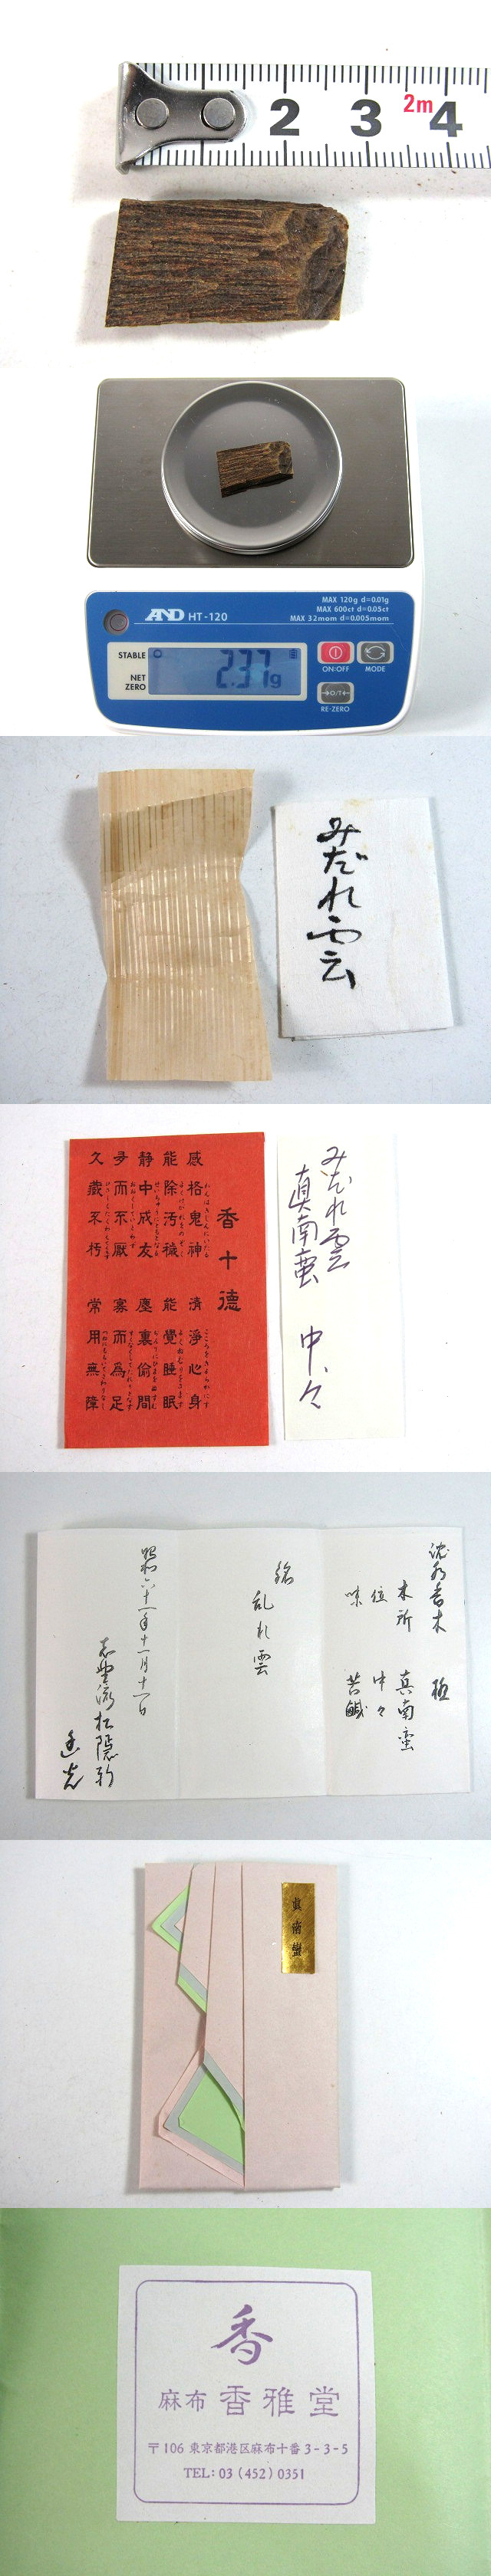 2 3 2m 4
MAX 120g d=0.01g
AND HT-120
MAX 600ct d=0.05ct
MAX 32mom d=0.005mom
STABLE
2.37g
NET
ZERO
ON:OFF
MODE
→0/T←
RE-ZERO
みだれ雲
香十徳
感格鬼神 清淨心身
能除汚穢 能覺睡眠
静中成友 塵裏偷閒
多而不厭 寡而為足
久蔵不朽 常用無障
みだれ雲
真南蛮 中々
沈水香木 極
木所 真南蛮
位 中々
味 苦鹹
銘 乱れ雲
昭和六十一年十一月十一日
志野流松隠軒
真南蠻
香
麻布 香雅堂
〒106 東京都港区麻布十番3-3-5
TEL: 03 (452) 0351